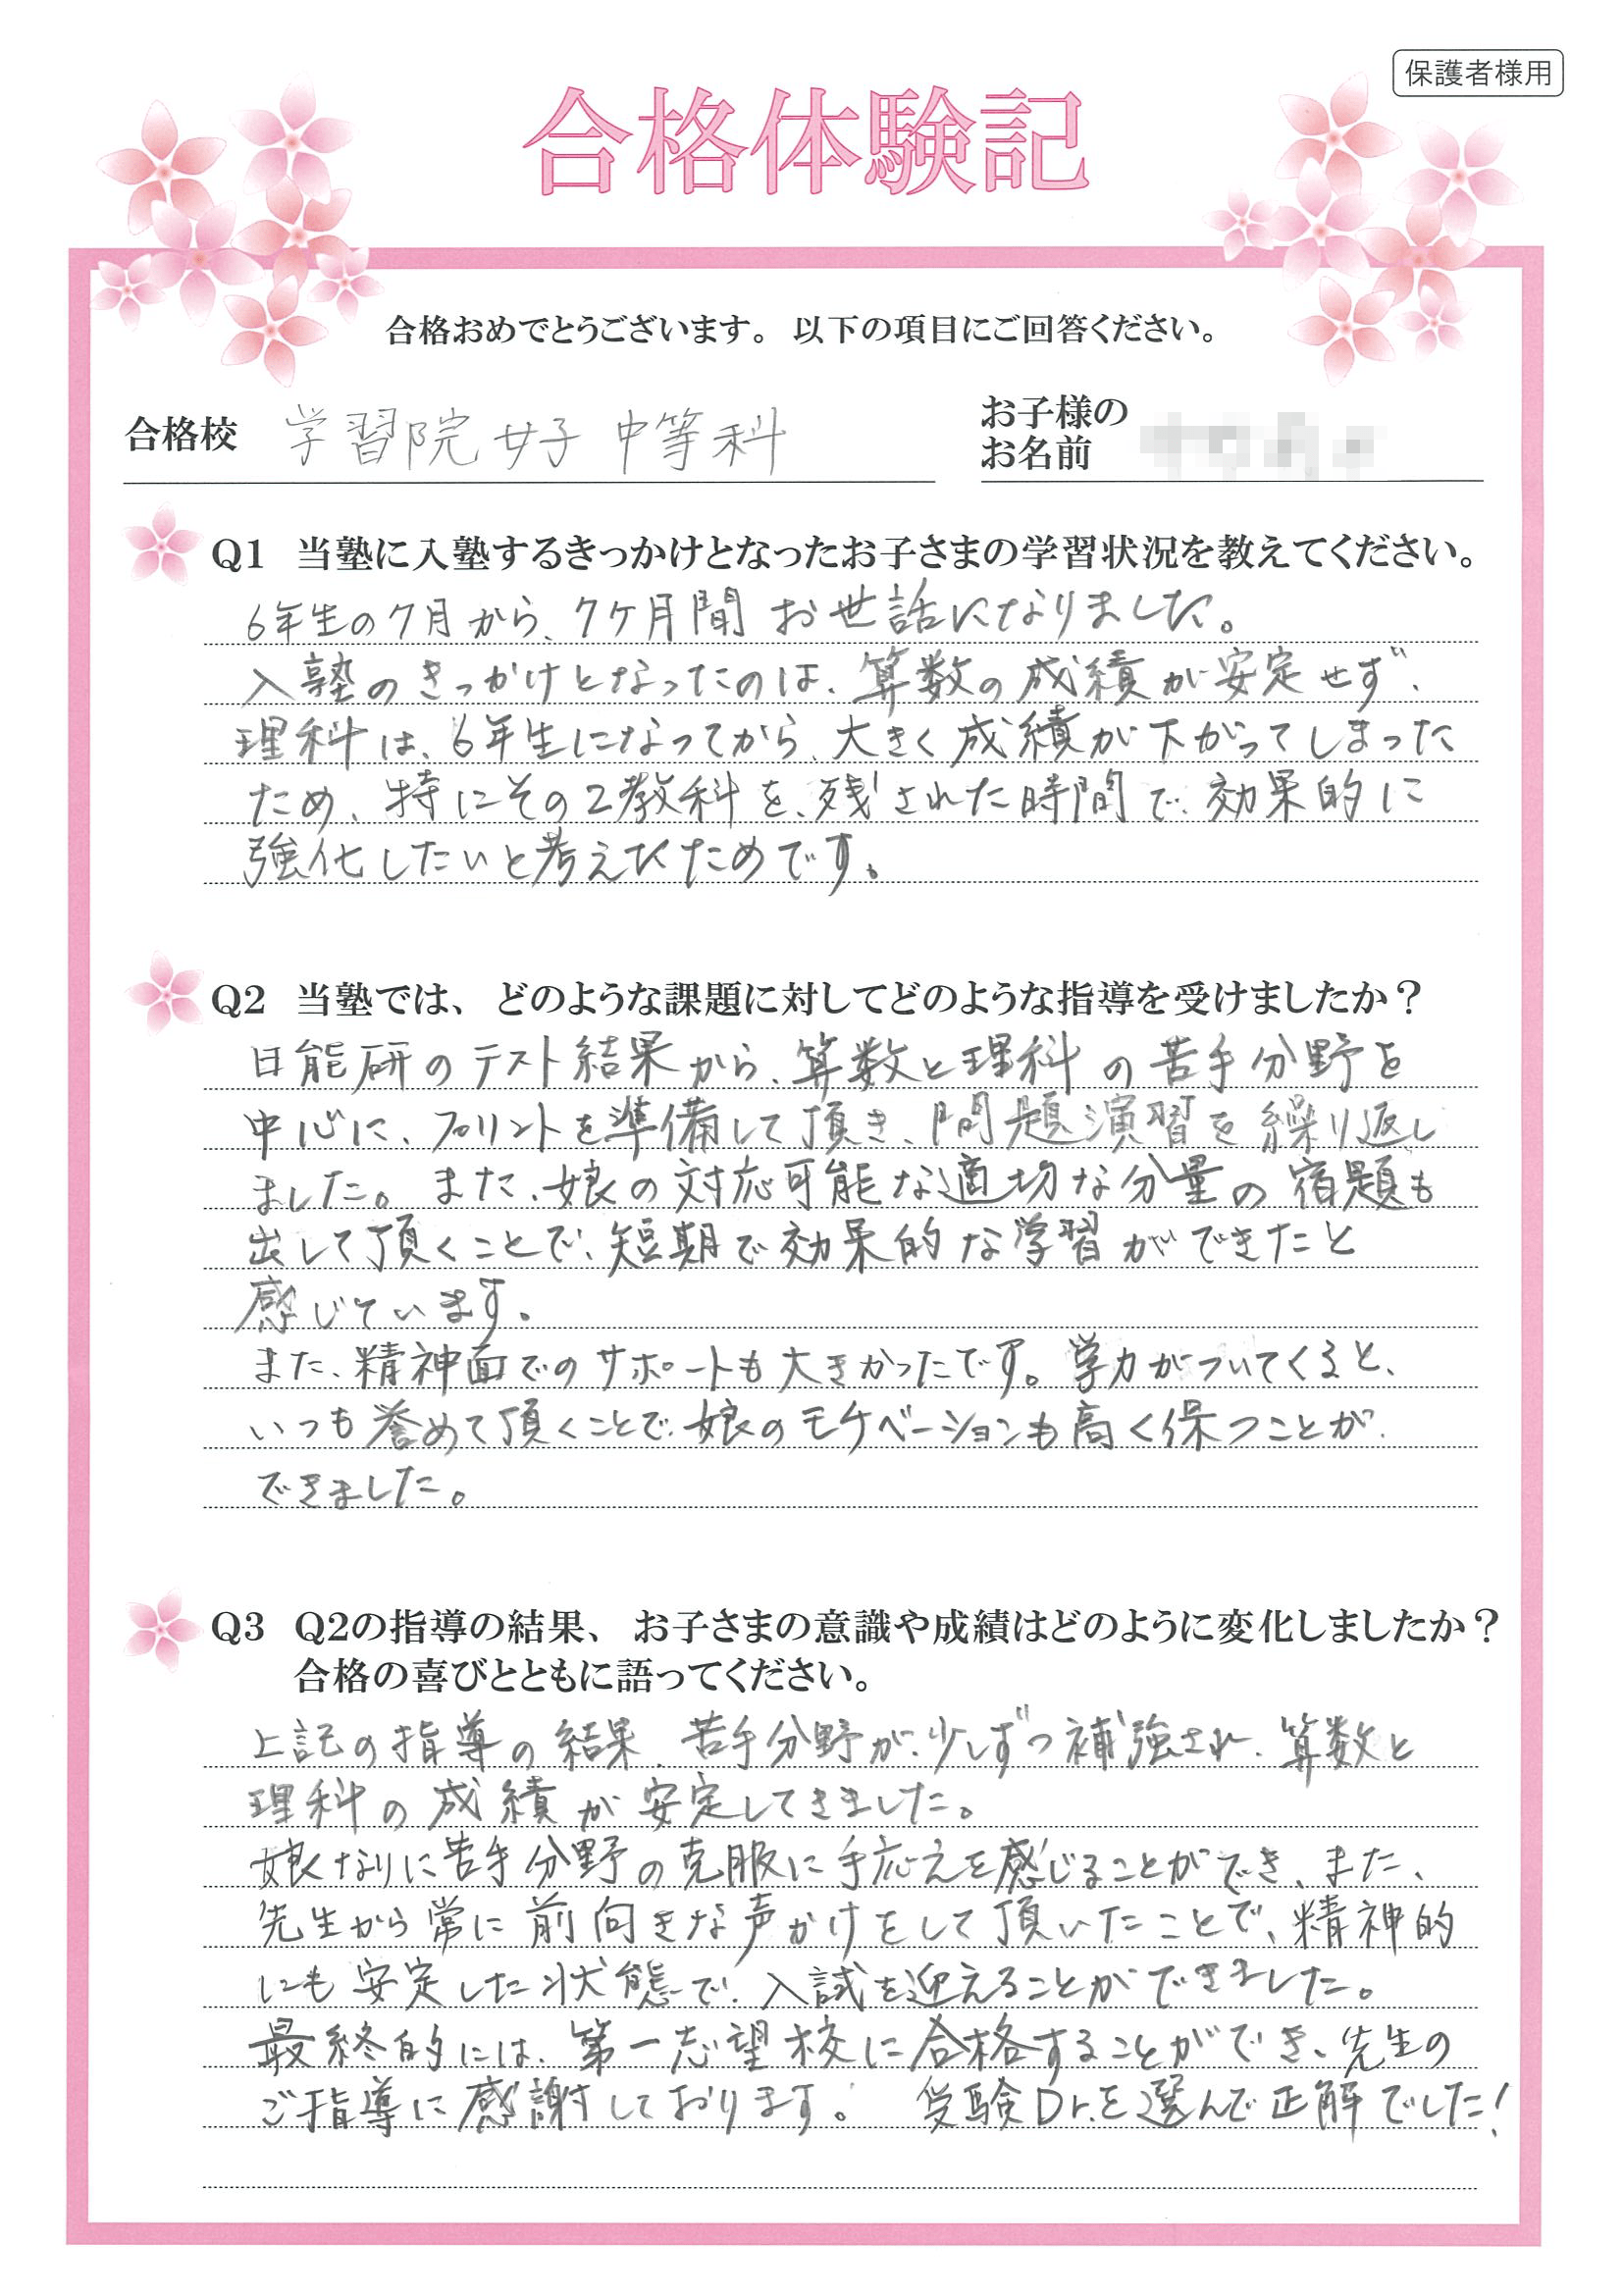 保護者様用
合格体験記
合格おめでとうございます。 以下の項目にご回答ください。
合格校 学習院女子中等科
お子様の
お名前
Q1 当塾に入塾するきっかけとなったお子さまの学習状況を教えてください。
6年生の7月から、7ヶ月間お世話になりました。
入塾のきっかけとなったのは、算数の成績が安定せず、
理科は、6年生になってから、大きく成績が下がってしまった
ため、特にその2教科を、残された時間で、効果的に
強化したいと考えたためです。
Q2 当塾では、どのような課題に対してどのような指導を受けましたか？
日能研のテスト結果から、算数と理科の苦手分野を
中心に、プリントを準備して頂き、問題演習を繰り返し
ました。また、娘の対応可能な適切な分量の宿題も
出して頂くことで、短期で効果的な学習ができたと
感じています。
また、精神面でのサポートも大きかったです。学力がついてくると、
いつも誉めて頂くことで、娘のモチベーションも高く保つことが
できました。
Q3 Q2の指導の結果、お子さまの意識や成績はどのように変化しましたか？
合格の喜びとともに語ってください。
上記の指導の結果、苦手分野が、少しずつ補強され、算数と
理科の成績が安定してきました。
娘なりに苦手分野の克服に手応えを感じることができ、また、
先生から常に前向きな声かけをして頂いたことで、精神的
にも安定した状態で、入試を迎えることができました。
最終的には、第一志望校に合格することができ、先生の
ご指導に感謝しております。 受験Dr.を選んで正解でした！